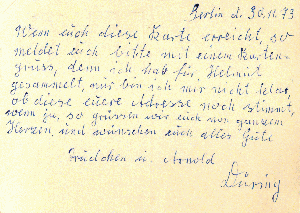 Berlin d. 26.11.73
Wenn euch diese Karte erreicht, so
meldet euch bitte mit einem Karten-
gruss, denn ich hab für Helmut
gesammelt, nur bin ich mir nicht klar,
ob diese euere Adresse noch stimmt,
wenn ja, so grüssen wir euch von ganzem
Herzen, und wünschen euch alles Gute
u. Arnold
Düring